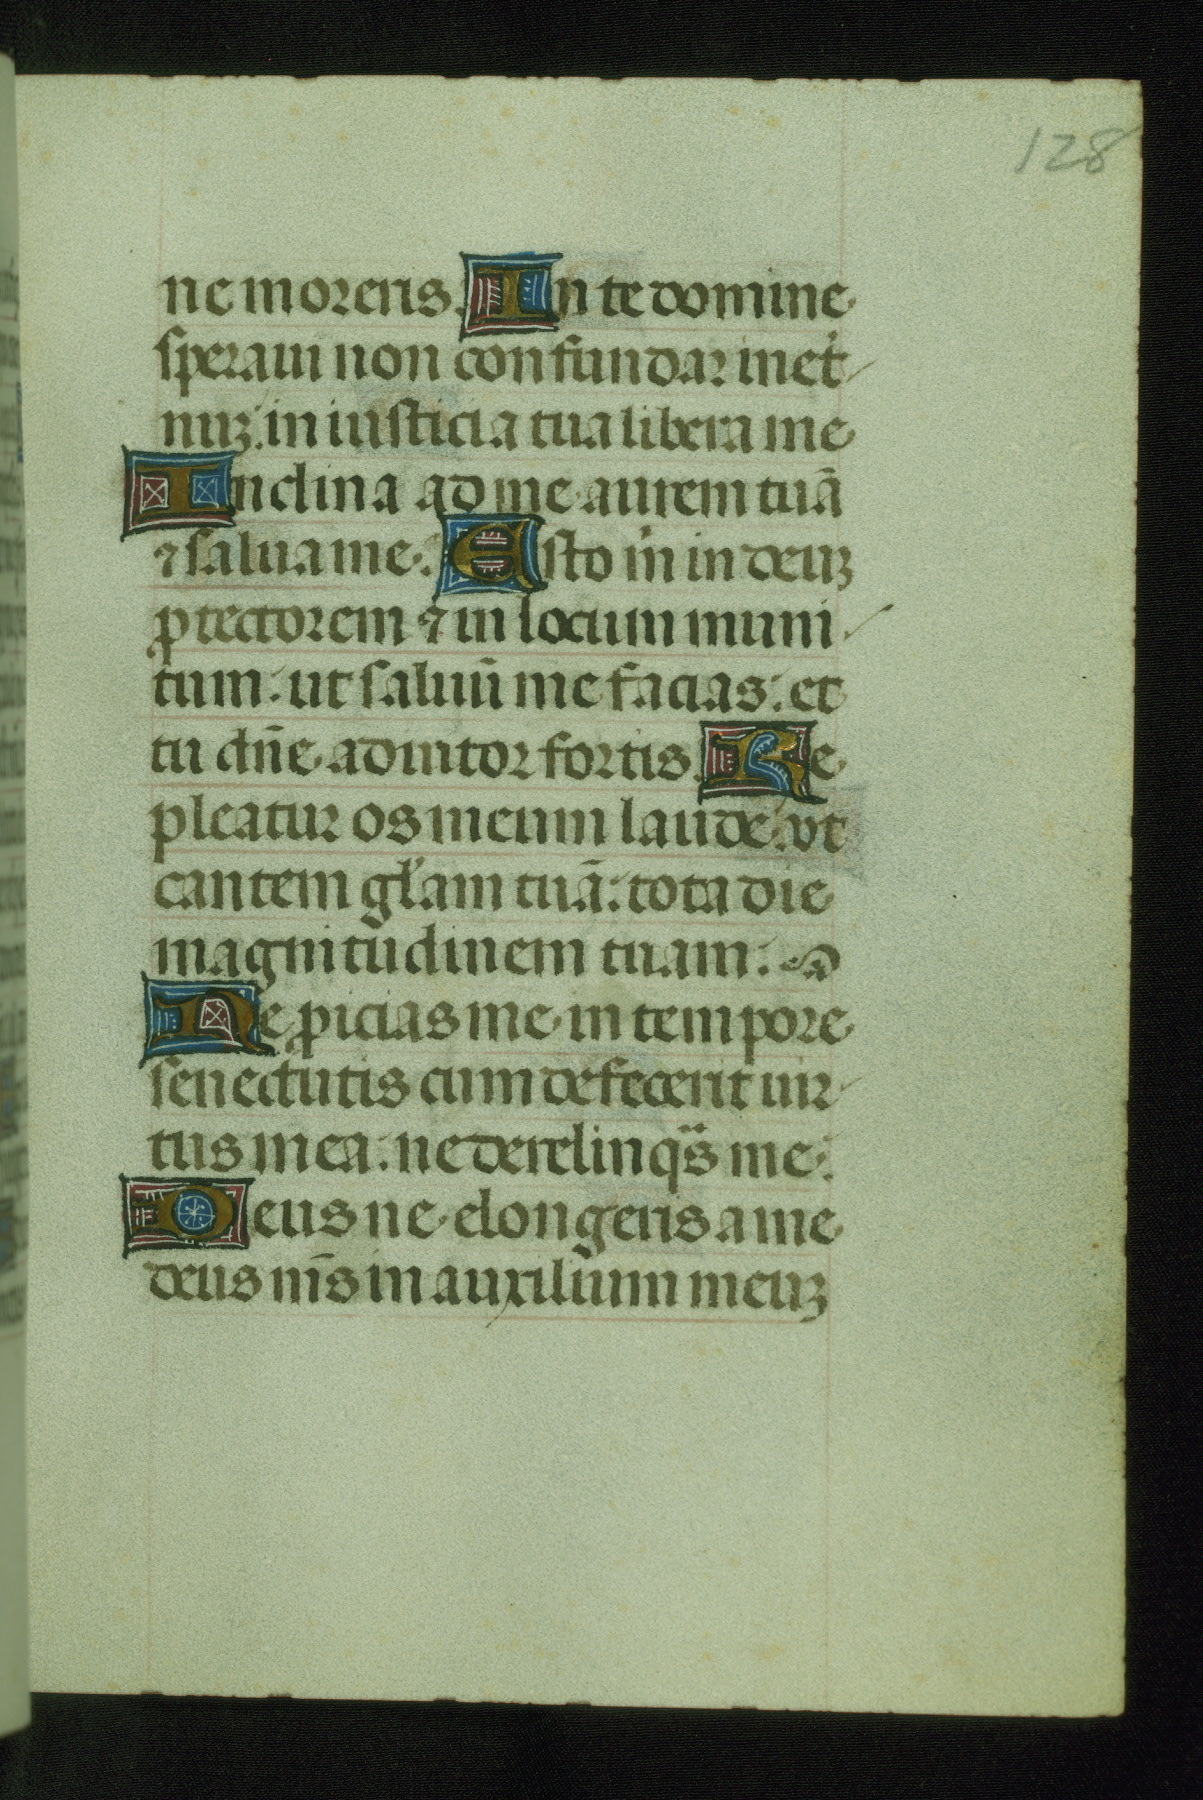 128
ne moreris. In te domine
speraui non confundar in et̾
nuꝫ: in iusticia tua libera me
Inclina ad me aurem tuā
⁊ salua me. Esto m̾ in deuꝫ
ꝓtectorem ⁊ in locum muni
tum: ut saluū me facias: et
tu dn̄e adiutor fortis. Re
pleatur os meum laude. vt
cantem gl̾am tuā: tota die
magnitudinem tuam:
Ne ꝓicias me in tempore
senectutis cum defecerit uir
tus mea: ne derelinq̃s me:
Deus ne elongeris a me
deus m̄s in auxilium meuꝫ